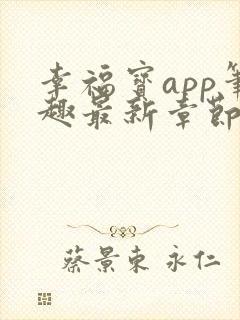 幸福宝app笔
趣最新章节
蔡景东 永仁